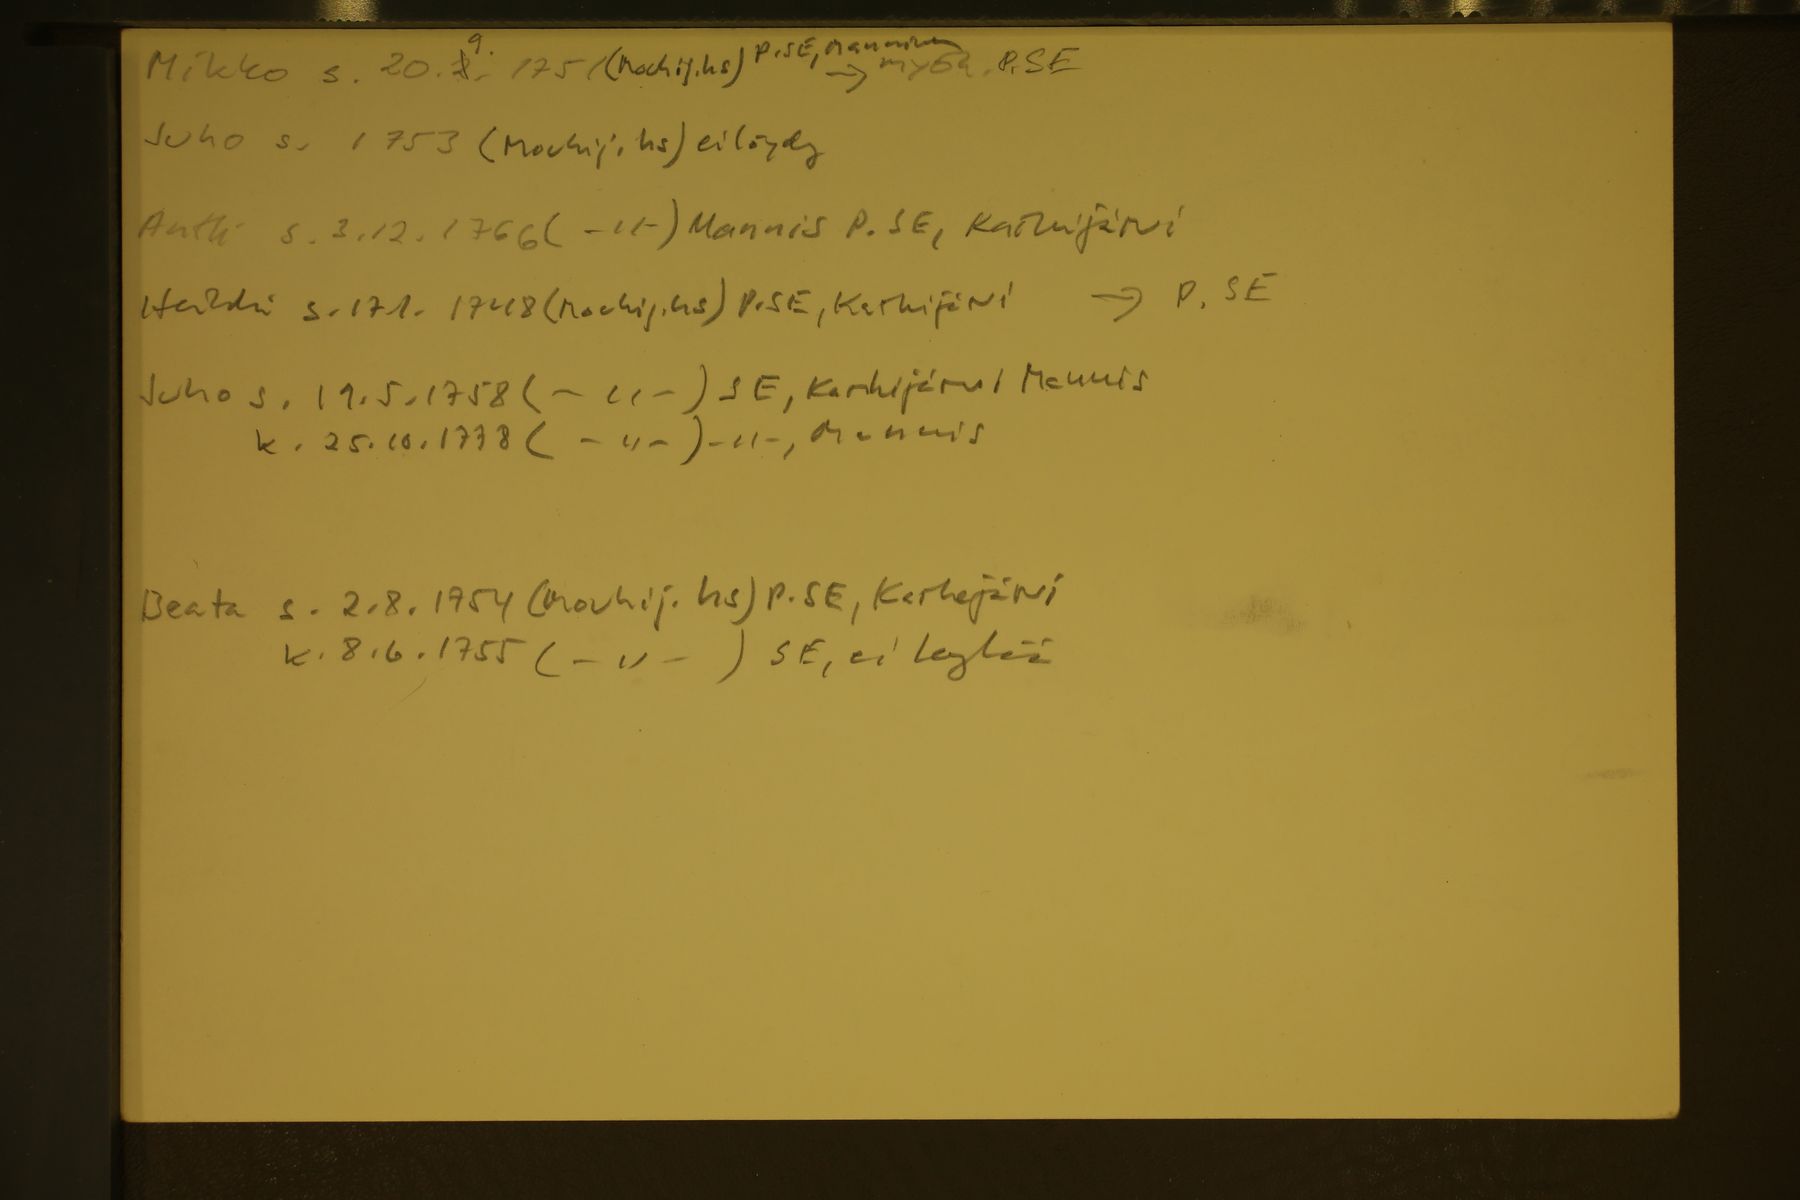 Mikko s. 20.9. 1751 (Mouhij.hs) P.SE, Manninen → myöh. P.SE
Juho s. 1753 (Mouhij. hs) ei löydy
Antti s. 3.12. 1766 ( -"- ) Mannis P. SE, Karhijärvi
Heikki s. 17.1. 1748 (Mouhij.hs) P.SE, Karhijärvi → P. SE
Juho s. 19.5.1758 ( - " - ) SE, Karhijärvi Mannis
k. 25.10.1778 ( - " - ) -"-, Mannis
Beata s. 2.8. 1754 (Mouhij. hs) P.SE, Karhijärvi
k. 8.6. 1755 ( - " - ) SE, ei